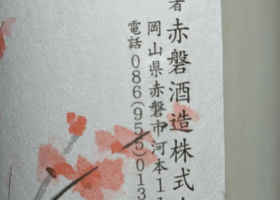 者 赤磐酒造株式
岡山県赤磐市河本11
電話 086(955)013